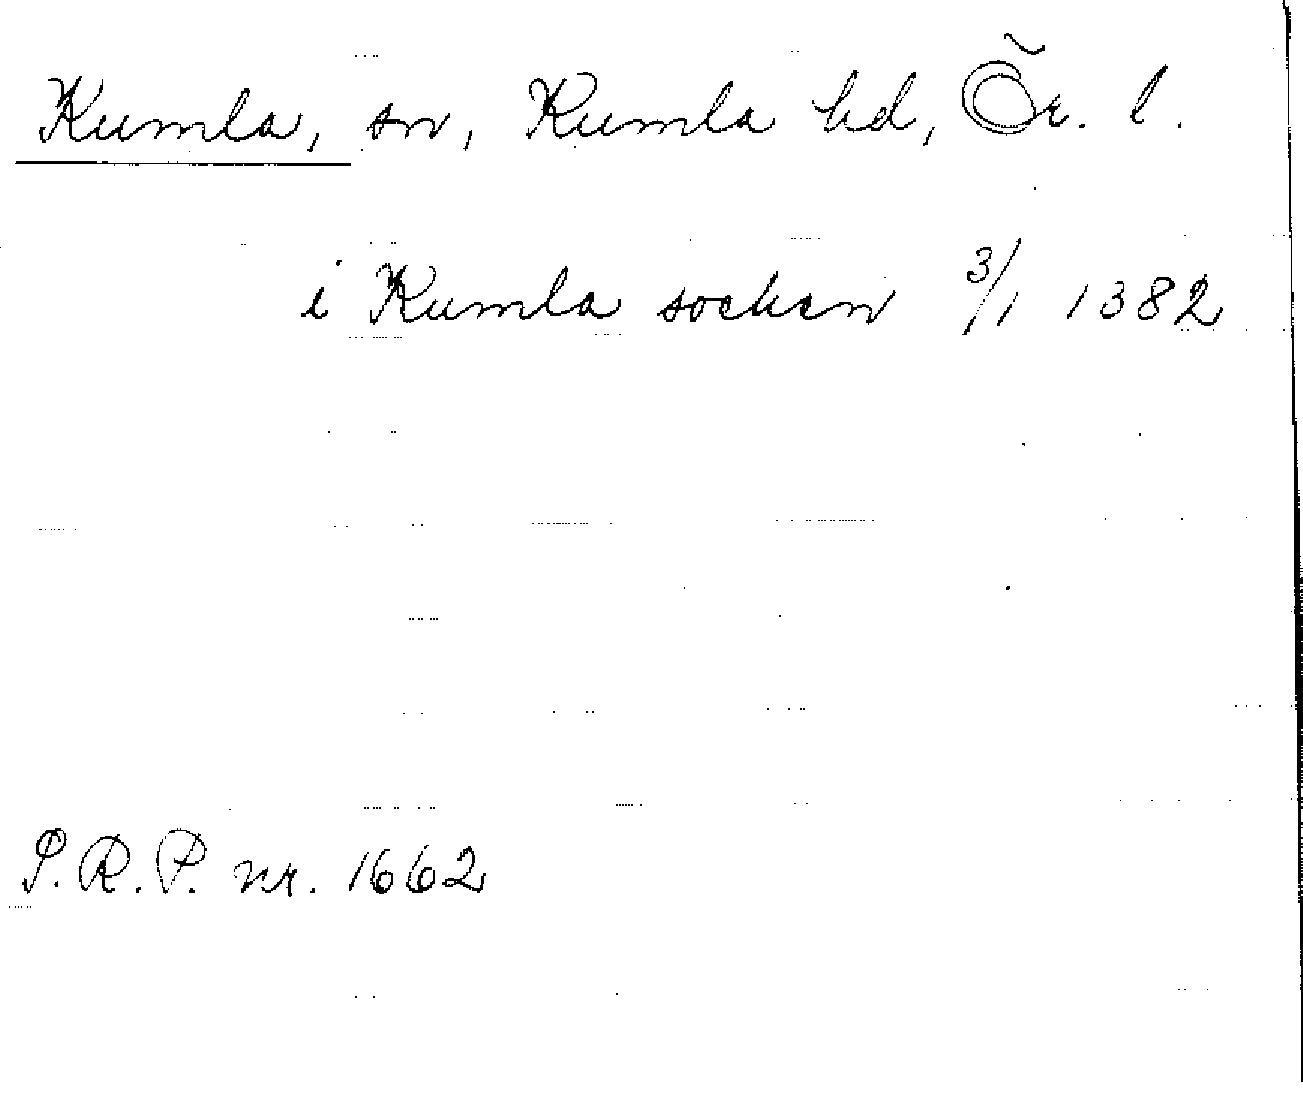 Kumla, sn, Kumla hd, Ör. l.
i Kumla socken 3/1 1382
S.R.P. nr. 1662